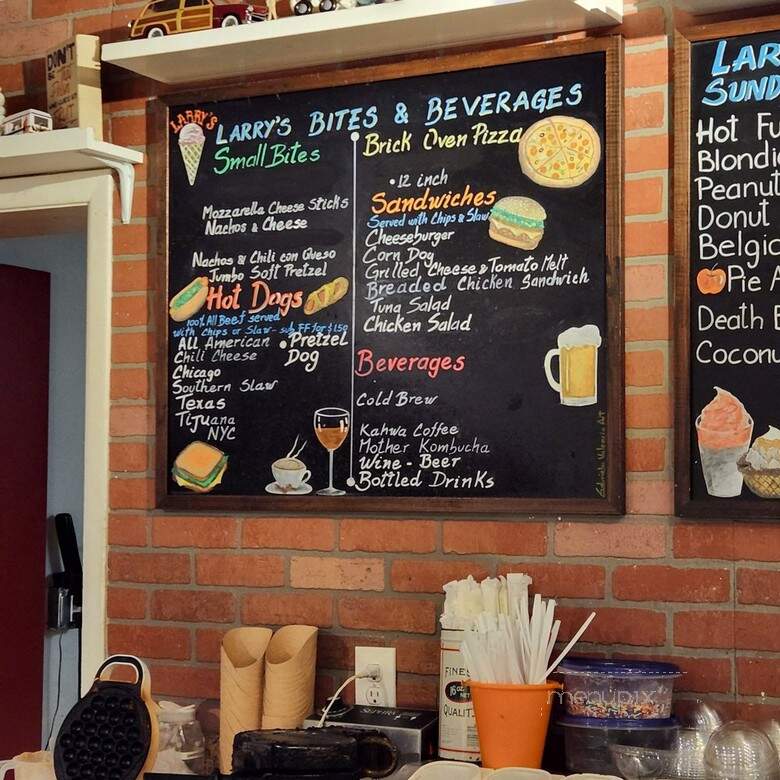 LARRY'S
LARRY'S BITES & BEVERAGES
Small Bites
Mozzarella Cheese Sticks
Nachos & Cheese
Nachos & Chili con Queso
Jumbo Soft Pretzel
Hot Dogs
100% All Beef served
with Chips or Slaw - sub FF for $1.50
All American
Chili Cheese
Chicago
Southern Slaw
Texas
Tijuana
NYC
• Pretzel
Dog
Brick Oven Pizza
• 12 inch
Sandwiches
Served with Chips & Slaw
Cheeseburger
Corn Dog
Grilled Cheese & Tomato Melt
Breaded Chicken Sandwich
Tuna Salad
Chicken Salad
Beverages
Cold Brew
Kahwa Coffee
Mother Kombucha
Wine - Beer
Bottled Drinks
LAR
SUND
Hot Fu
Blondi
Peanut
Donut
Belgic
Pie A
Death B
Coconu
FINES
QUALIT
menupix